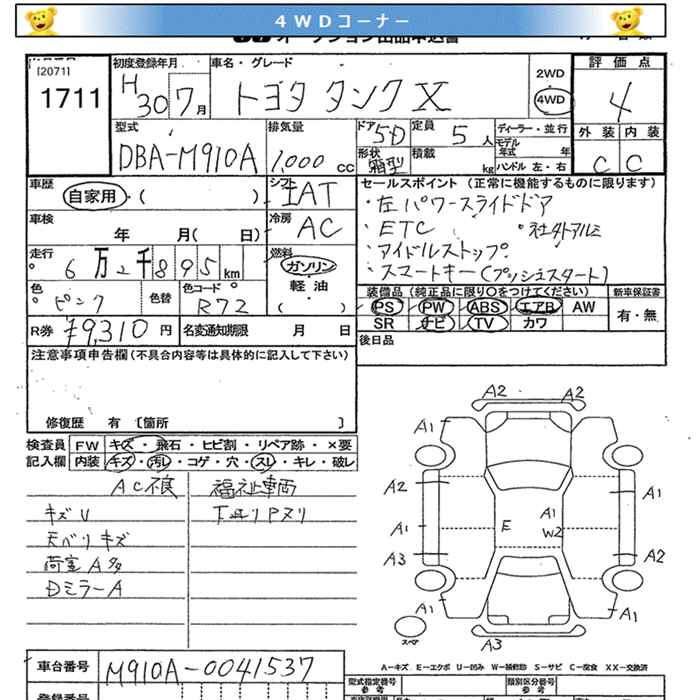 4WDコーナー
オークション出品申込書
[2071]
1711
初度登録年月
H30 7月
車名・グレード
トヨタ タンク X
2WD
4WD
評価点
4
外装 内装
C C
型式
DBA-M910A
排気量
1,000 cc
ドア 5D
形状 箱型
定員 5人
積載 kg
ディーラー・並行
モデル年式 年
ハンドル 左・右
車歴
自家用・( )
シフト IAT
セールスポイント (正常に機能するものに限ります)
・左パワースライドドア
・ETC ・社外アルミ
・アイドルストップ
・スマートキー(プッシュスタート)
車検
年 月( 日)
冷房 AC
走行
6万2千895km
燃料
ガソリン
軽油
( )
色
ピンク
色替
色コード
R72
装備品 (純正品に限り○をつけてください)
PS PW ABS エアB AW
SR ナビ TV カワ
新車保証書
有・無
R券 ¥9,310円
名変通知期限 月 日
後日品
注意事項申告欄(不具合内容等は具体的に記入して下さい)
修復歴 有 [箇所 ]
検査員記入欄
FW キズ・飛石・ヒビ割・リペア跡・×要
内装 キズ・汚レ・コゲ・穴・スレ・キレ・破レ
AC不良 福祉車両
キズU
天ベリキズ
荷室A多
DミラーA
A2 A2
A1
A2 A1
E A1
W2
A1
A3 A2
A1 A1
スペア
A3
A-キズ E-エクボ U-凹み W-補修跡 S-サビ C-腐食 XX-交換済
車台番号
M910A-0041537
登録番号
型式指定番号
参考
類別区分番号
参考